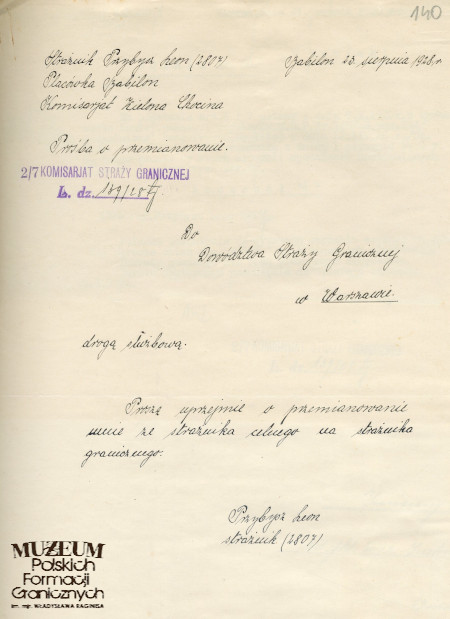 140
Strażnik Przybysz Leon (2807)
Żabilon 22 sierpnia 1928 r
Placówka Żabilon
Komisarjat Zielona Chocina
Prośba o przemianowanie.
2/7 KOMISARJAT STRAŻY GRANICZNEJ
L. dz. 189/28
Do
Dowództwa Straży Granicznej
w Warszawie.
drogą służbową.
Proszę uprzejmie o przemianowanie
mnie ze strażnika celnego na strażnika
granicznego.
Przybysz Leon
strażnik (2807)
MUZEUM
Polskich
Formacji
Granicznych
im. mjr. WŁADYSŁAWA RAGINISA